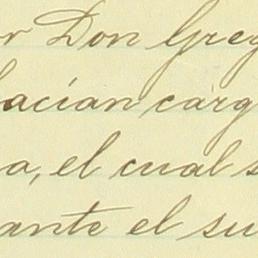 r Don Greg
hacían carg
a, el cual s
ante el su